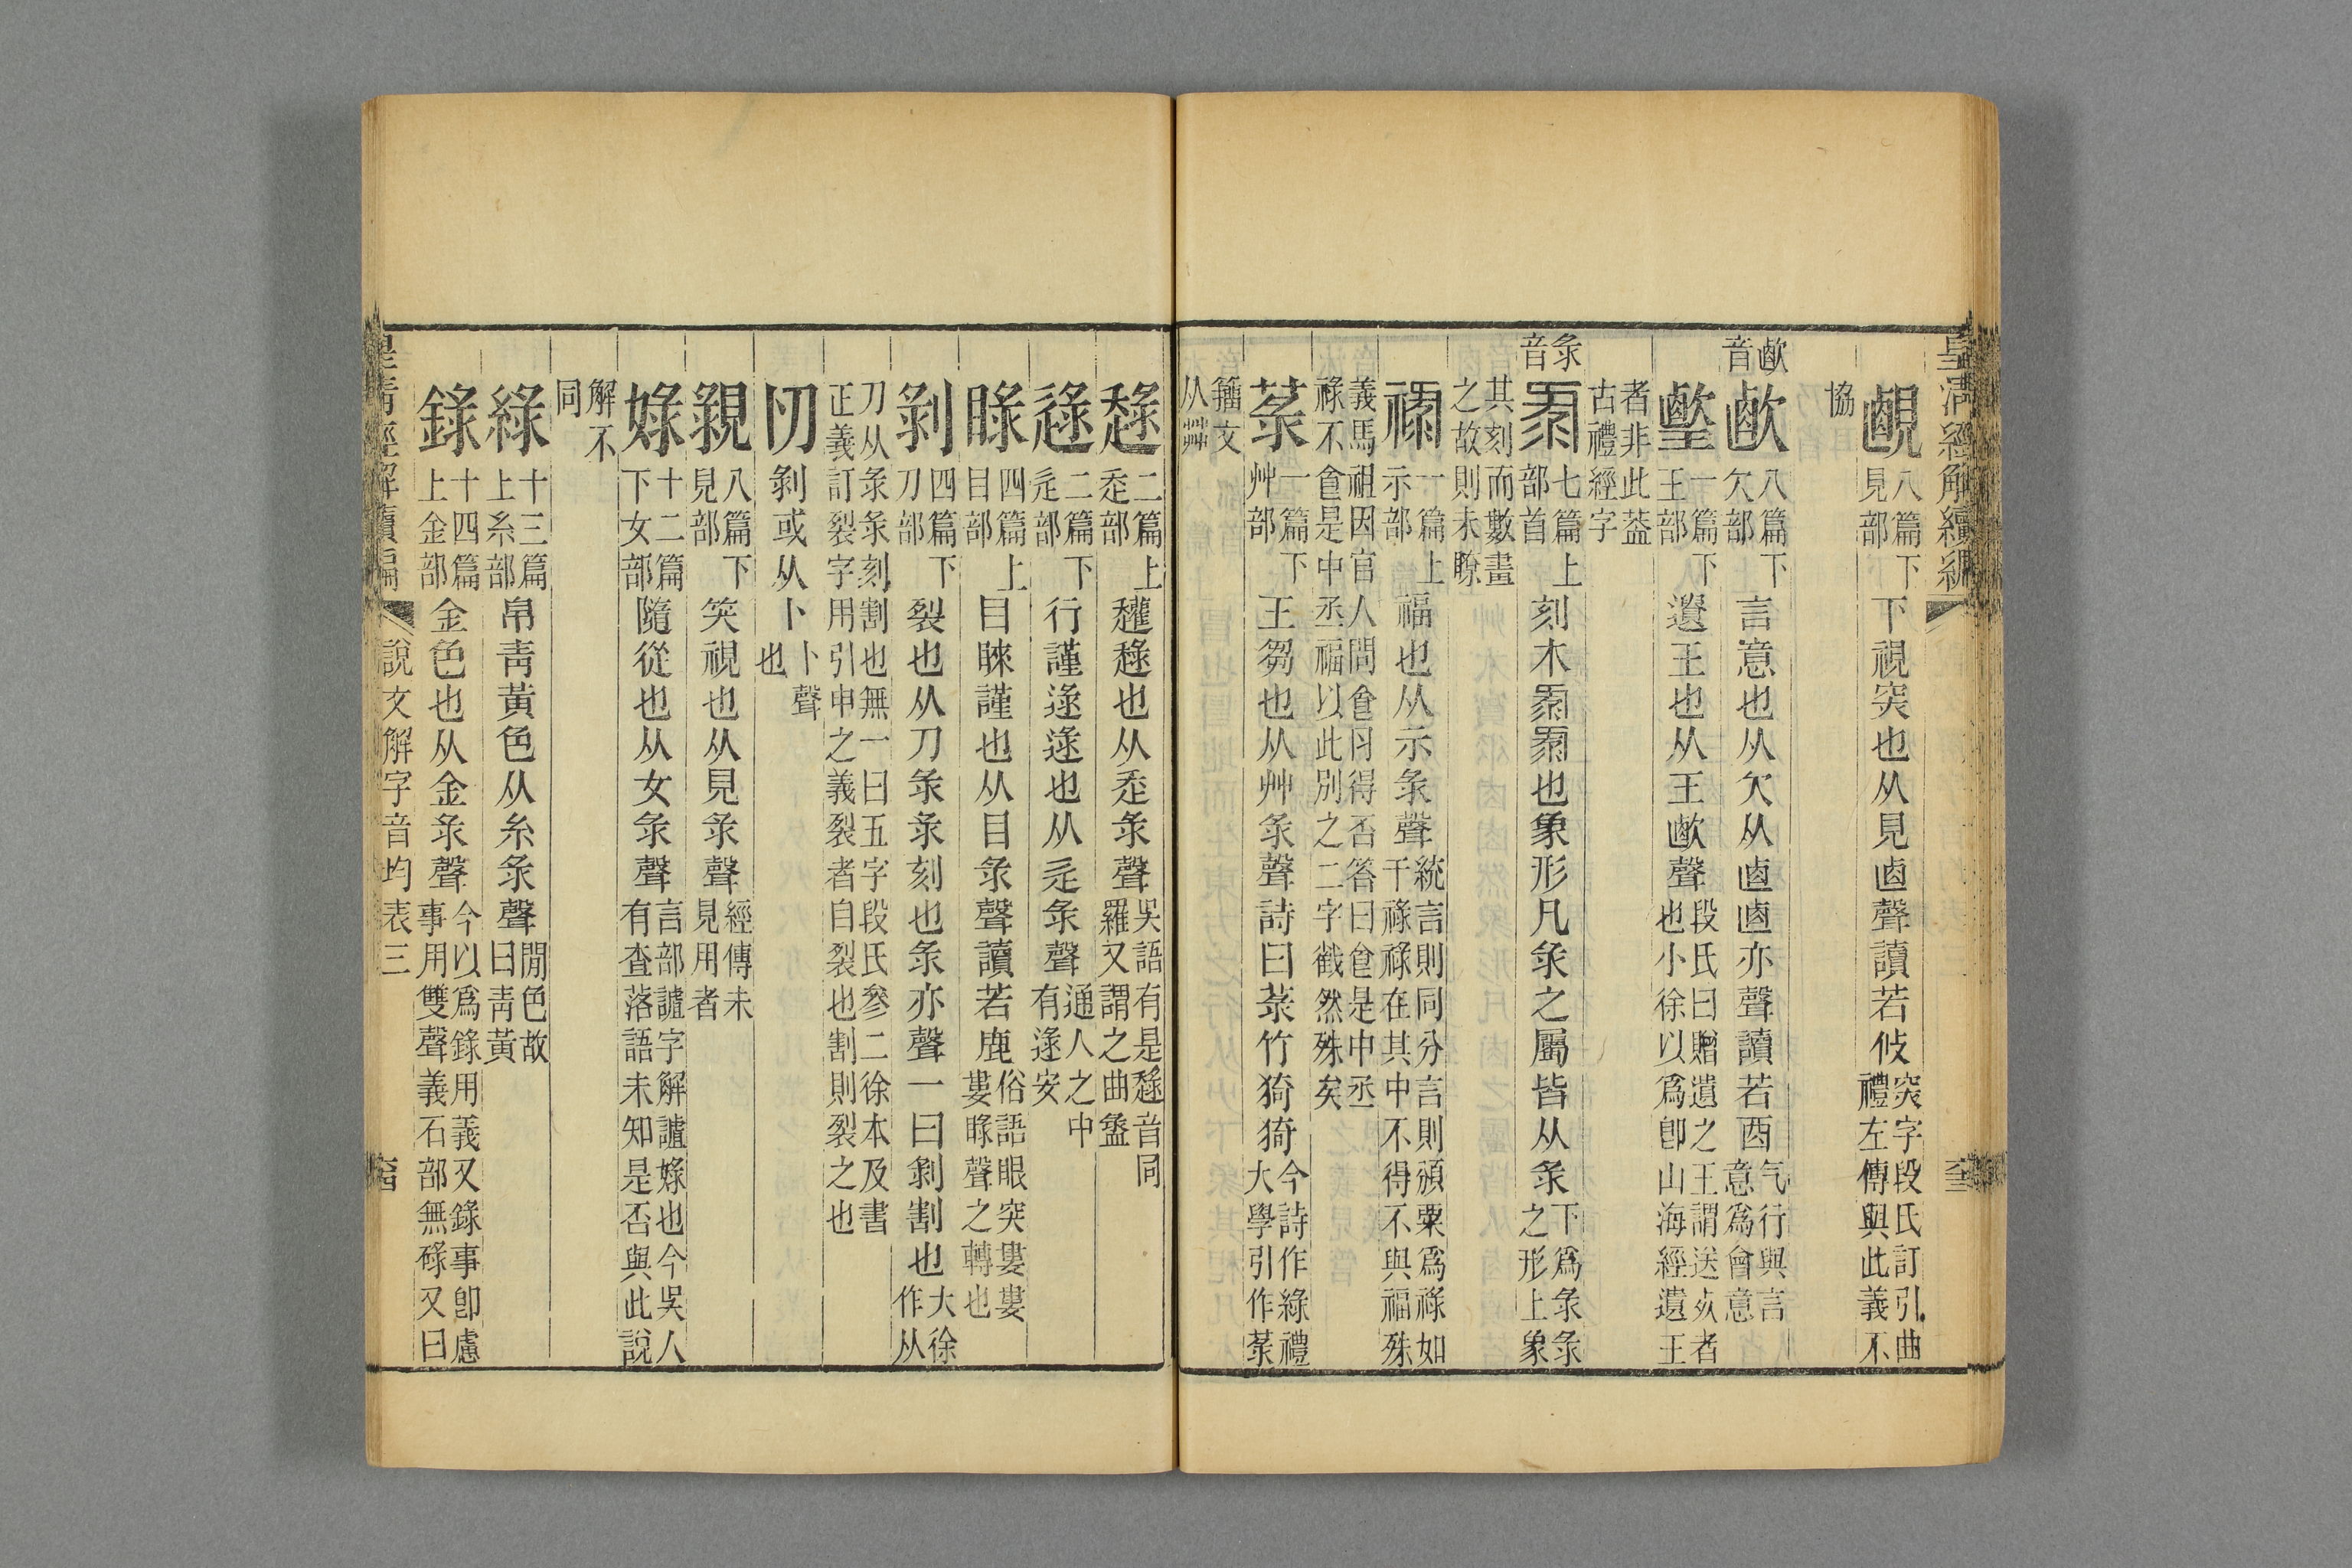 皇淸經解續編
覰八篇下見部下視突也从見𠧪聲讀若攸突字段氏訂引曲禮左傳與此義不
協
㰶音㰶八篇下欠部言意也从欠从𠧪𠧪亦聲讀若酉气行與言意爲會意
一篇下王部遺王也从王㰶聲段氏曰贈遺之王謂送死者也小徐以爲卽山海經遺王
者非此葢古禮經字
彔音彔七篇上部首刻木彔彔也象形凡彔之屬皆从彔下爲彔彔之形上象
其刻而數畫之故則未瞭
祿一篇上示部福也从示彔聲統言則同分言則頒粟爲祿如干祿祿在其中不得不與福殊
義馬祖因官人問會因得否答曰會是中丞祿不會是中丞福以此別之二字截然殊矣
菉一篇下艸部王芻也从艸彔聲詩曰菉竹猗猗今詩作綠禮大學引作菉
籒文从茻
趢二篇上走部䠓趢也从走彔聲吳語有是趢音同羅又謂之曲盝
逯二篇下辵部行謹逯逯也从辵彔聲通人之中有逯安
睩四篇上目部目睞謹也从目彔聲讀若鹿俗語眼突婁婁婁睩聲之轉也
剝四篇下刀部裂也从刀彔彔刻也彔亦聲一曰剝割也大徐作从
刀从彔彔刻割也無一曰五字段氏參二徐本及書正義訂裂字用引申之義裂者自裂也割則裂之也
㓟剝或从卜卜聲也
覙八篇下見部笑視也从見彔聲經傳未見用者
娽十二篇下女部隨從也从女彔聲言部謯字解謯娽也今吳人有查落語未知是否與此說
解不同
綠十三篇上糸部帛靑黃色从糸彔聲閒色故曰靑黃
錄十四篇上金部金色也从金彔聲今以爲錄用義又錄事卽慮事用雙聲義石部無碌又曰
皇淸經解續編 說文解字音均表三